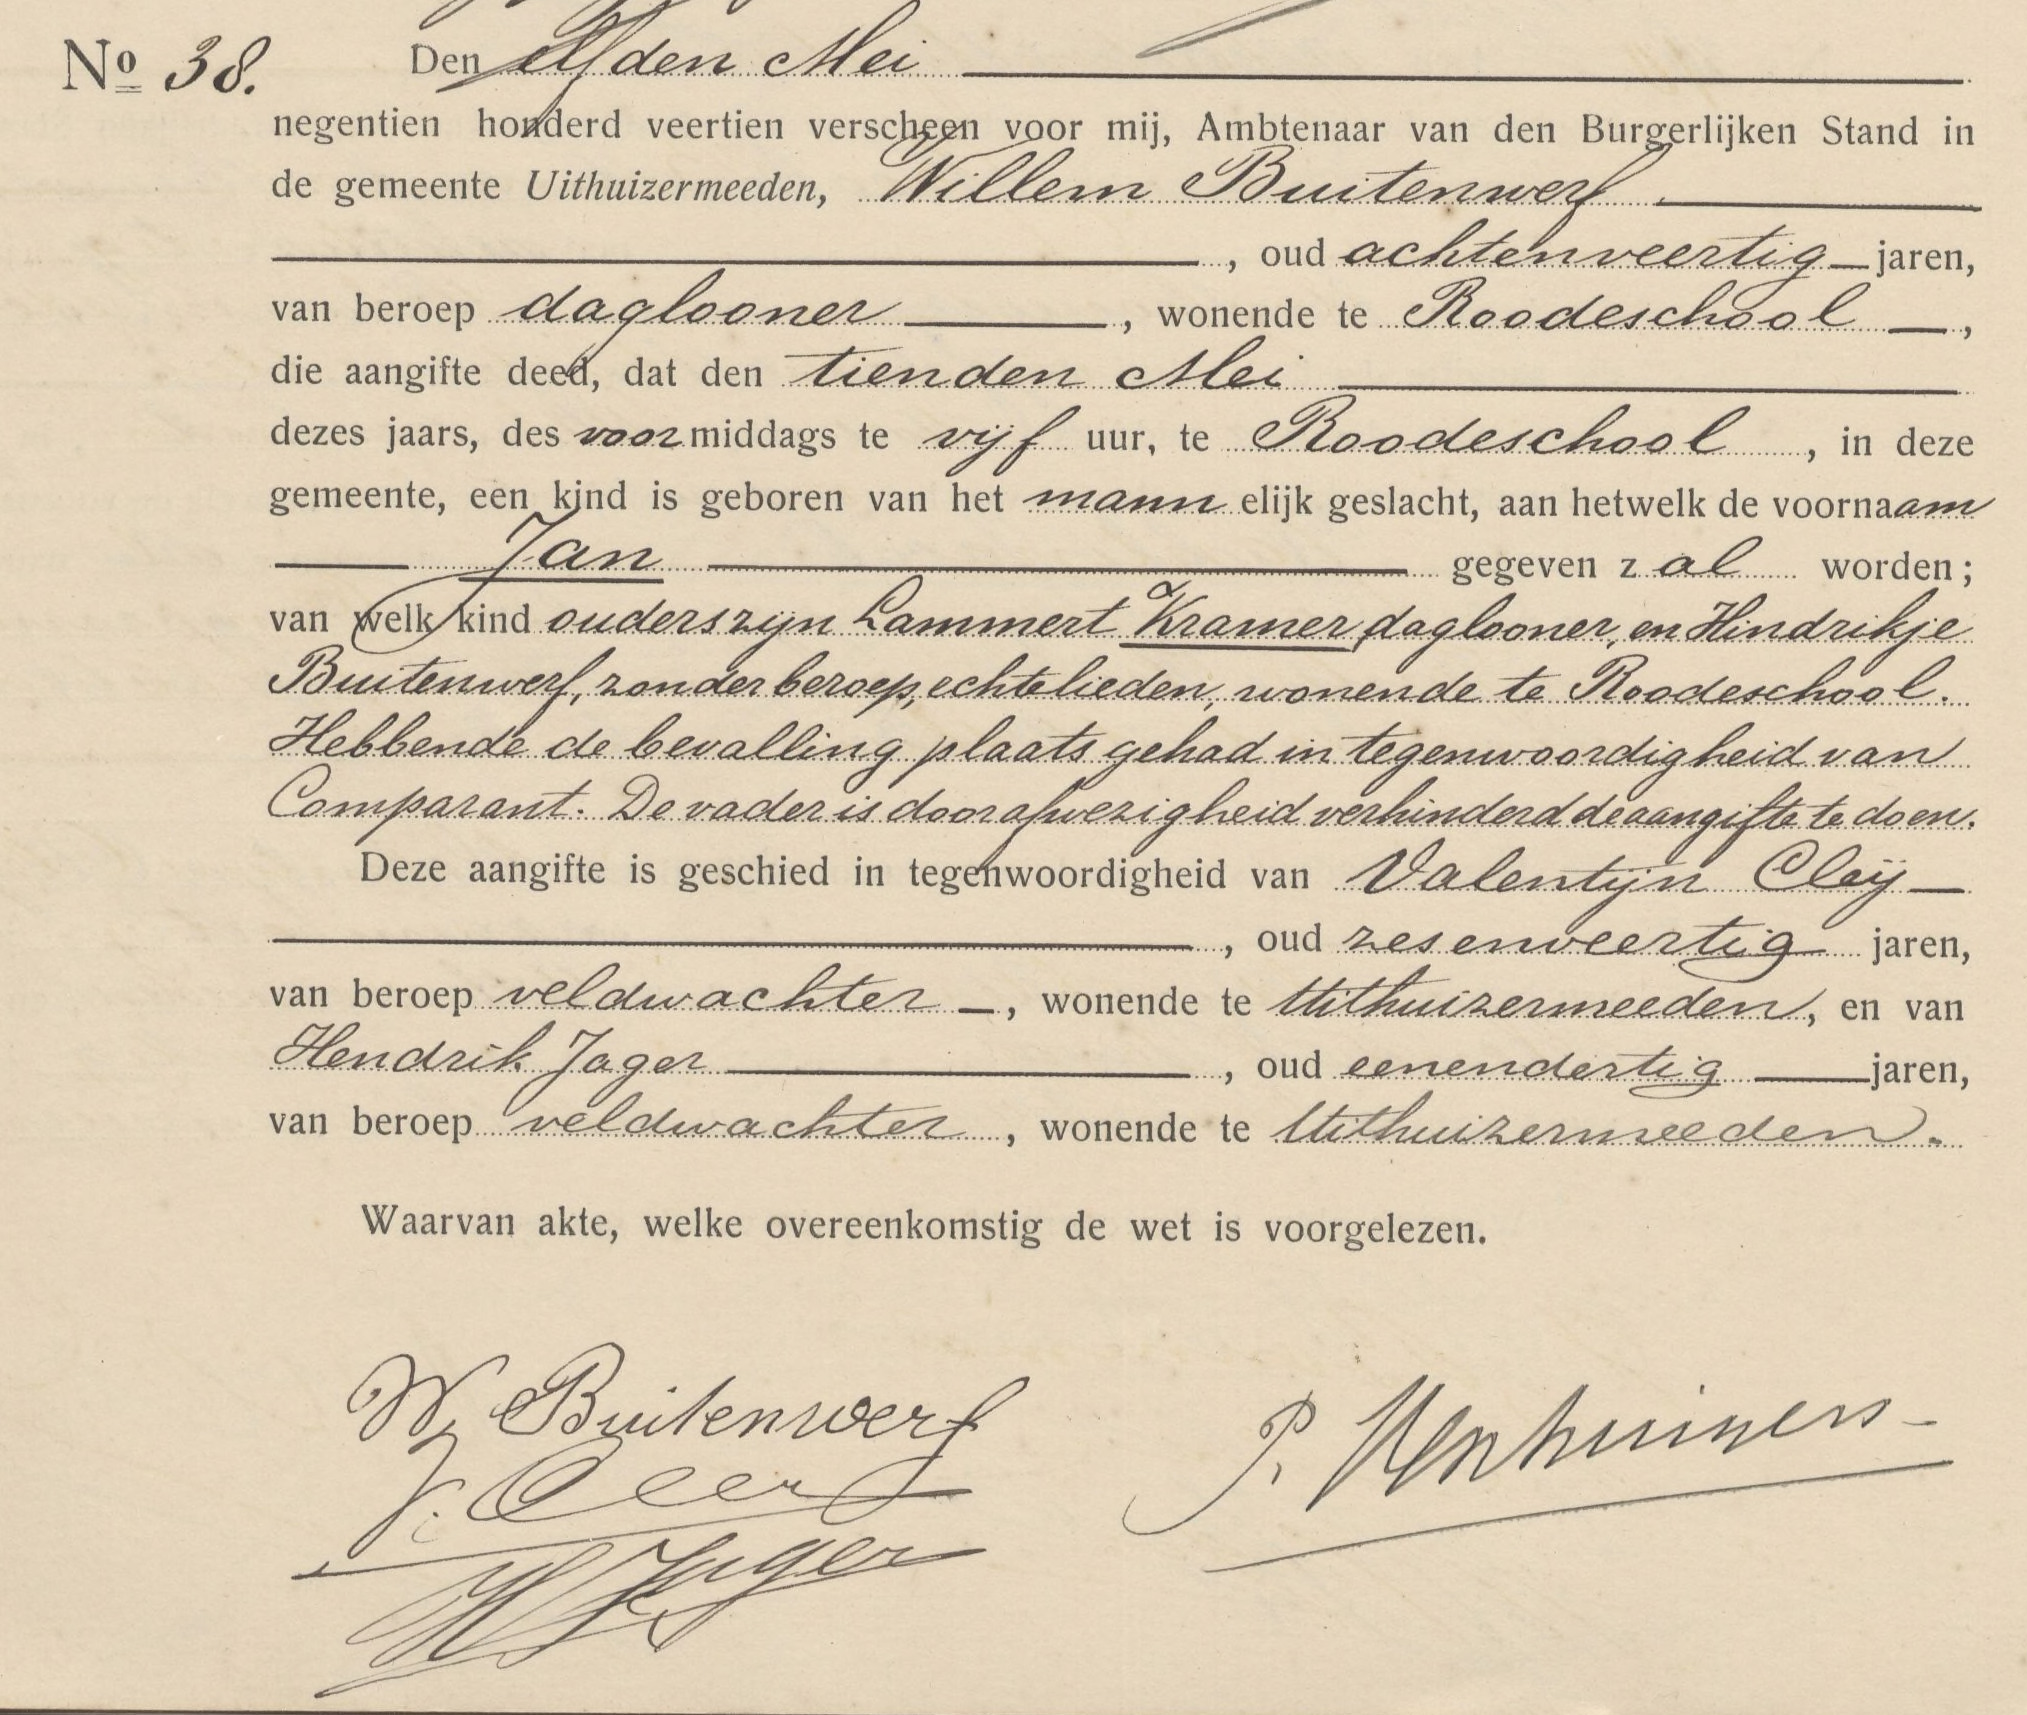 No 38. Den elfden Mei
negentien honderd veertien verscheen voor mij, Ambtenaar van den Burgerlijken Stand in
de gemeente Uithuizermeeden, Willem Buitenwerf.
, oud achtenveertig jaren,
van beroep daglooner, wonende te Roodeschool,
die aangifte deed, dat den tienden Mei
dezes jaars, des voormiddags te vijf uur, te Roodeschool, in deze
gemeente, een kind is geboren van het mannelijk geslacht, aan hetwelk de voornaam
Jan gegeven zal worden;
van welk kind ouders zijn Lammert Kramer, daglooner, en Hindrikje
Buitenwerf, zonder beroep, echtelieden, wonende te Roodeschool.
Hebbende de bevalling plaats gehad in tegenwoordigheid van
Comparant. De vader is door afwezigheid verhinderd de aangifte te doen.
Deze aangifte is geschied in tegenwoordigheid van Valentijn Cleij
, oud zesenveertig jaren,
van beroep veldwachter, wonende te Uithuizermeeden, en van
Hendrik Jager, oud eenendertig jaren,
van beroep veldwachter, wonende te Uithuizermeeden.
Waarvan akte, welke overeenkomstig de wet is voorgelezen.
W. Buitenwerf
P.
H Jager